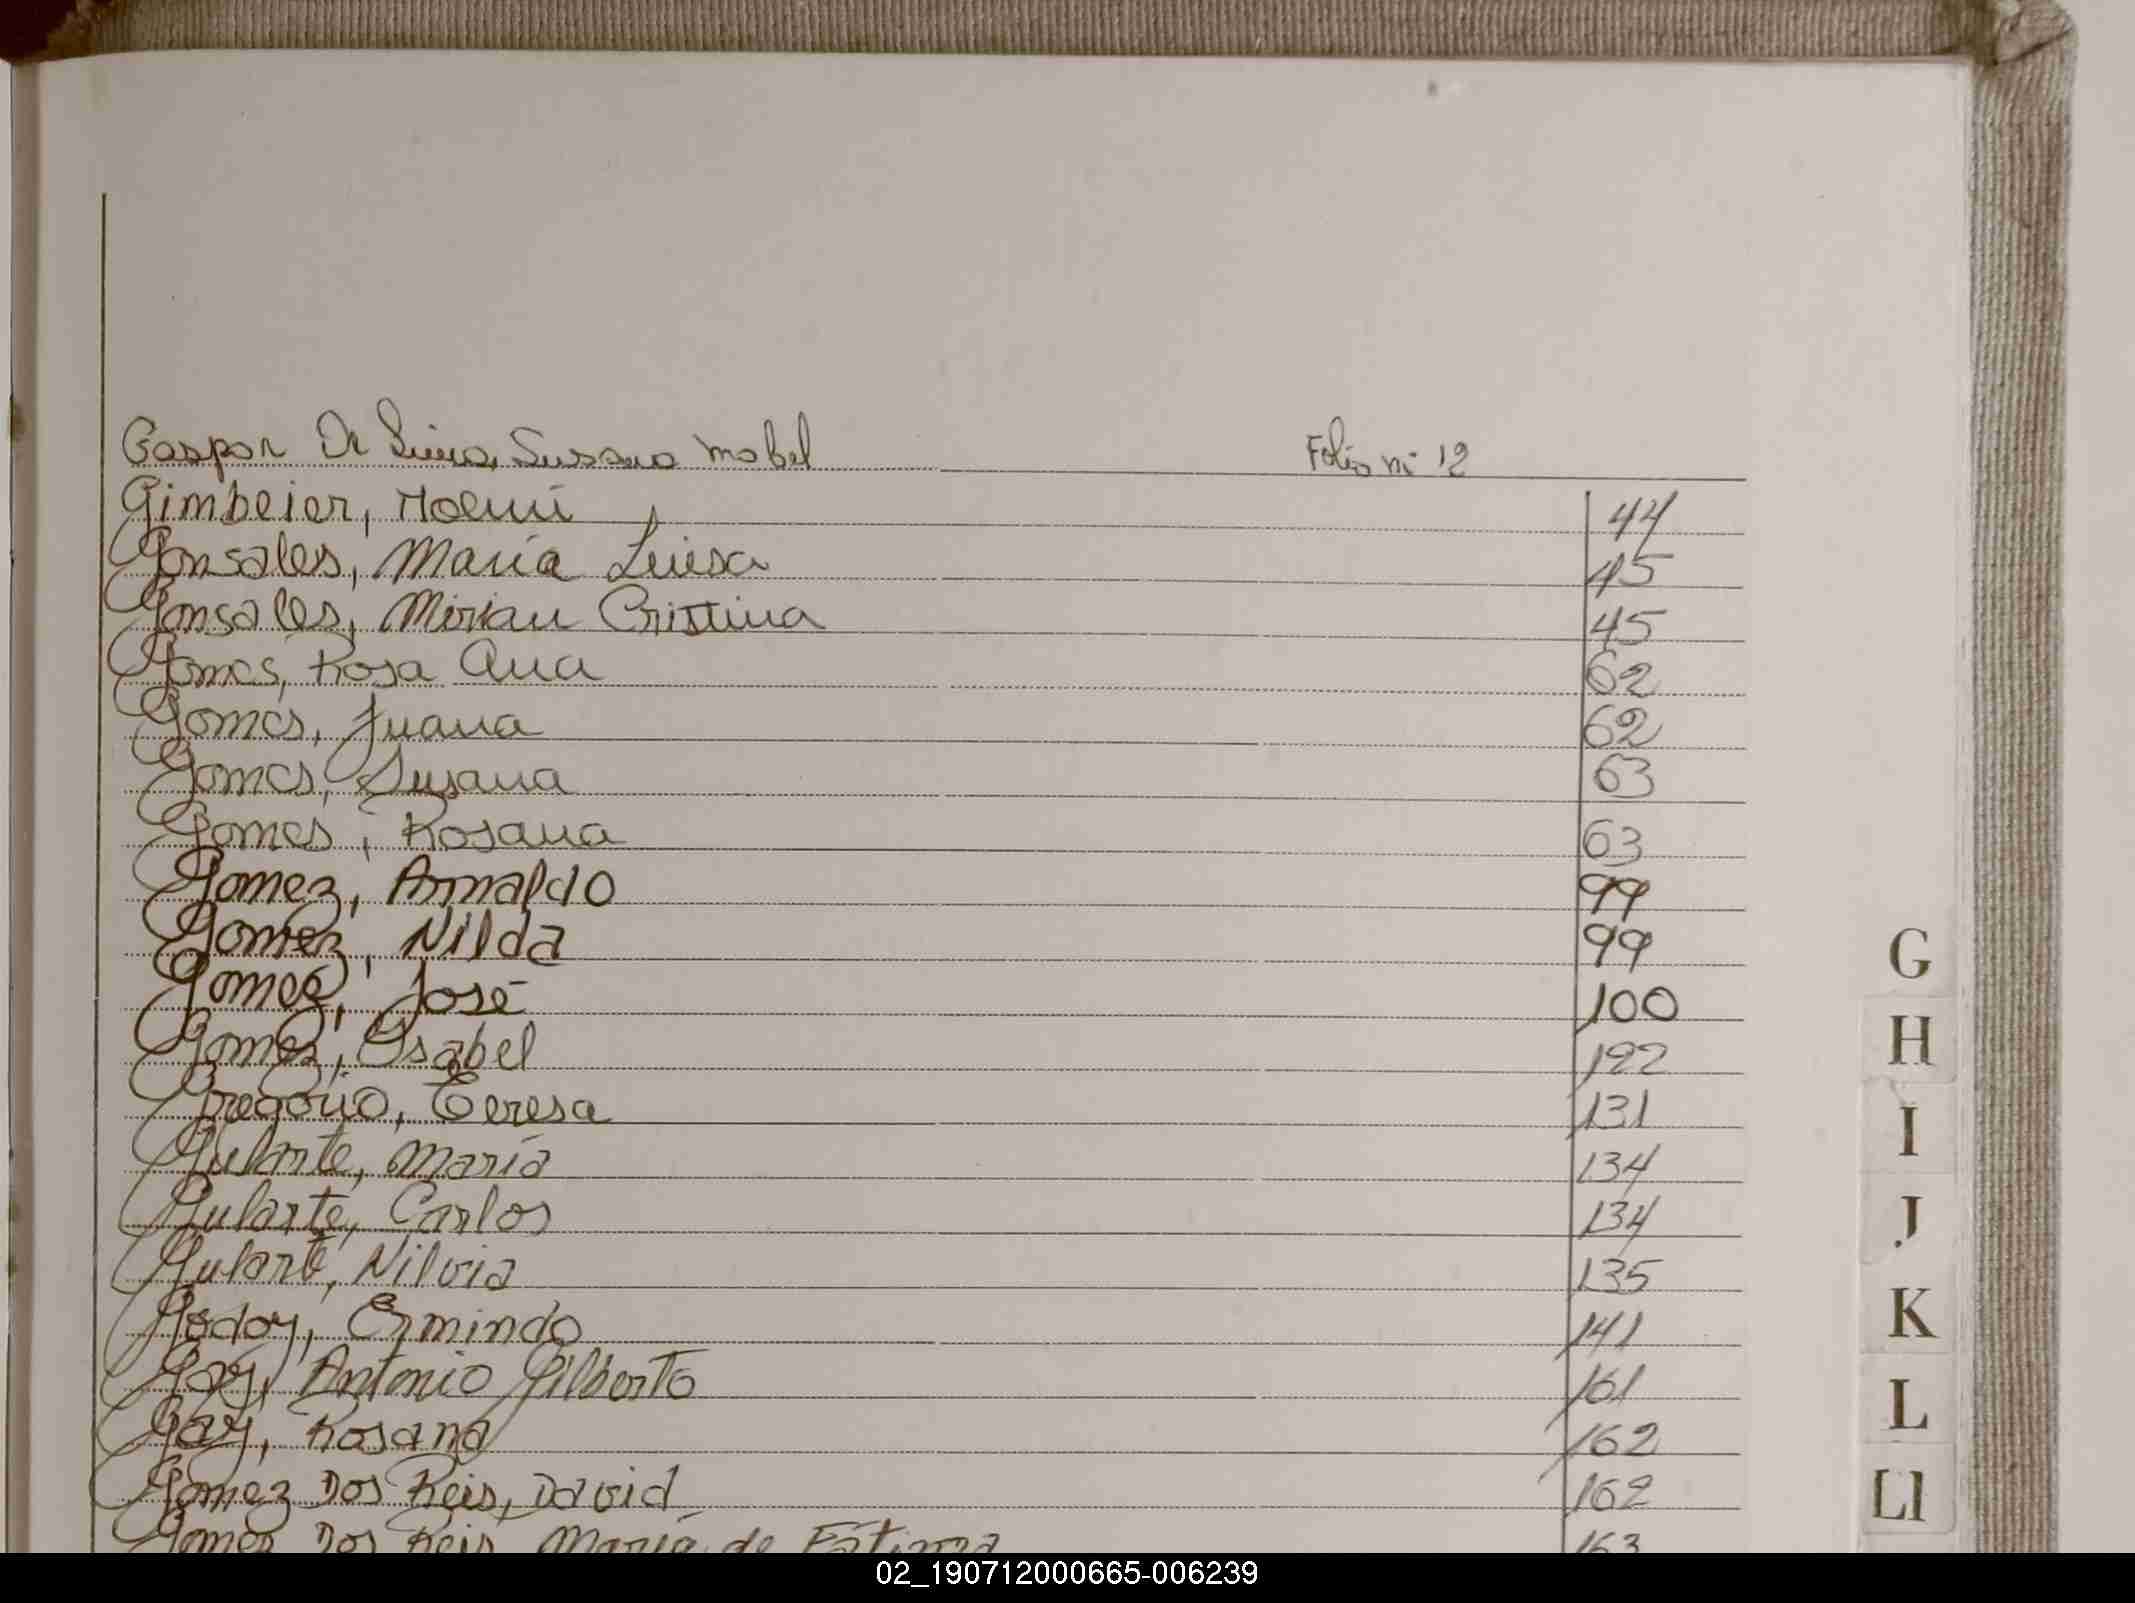 Gaspar De Lima, Susana Mabel Folio nº 12
Gimbeier, Noemí 44
Gonsales, María Luisa 45
Gonsales, Mirian Cristina 45
Gomes, Rosa Ana 62
Gomes, Juana 62
Gomes, Susana 63
Gomes, Rosana 63
Gomez, Arnaldo 99
Gomez, Nilda 99
Gomez, José 100
Gomez, Isabel 122
Gregorio, Teresa 131
Gularte, María 134
Gularte, Carlos 134
Gularte, Nilvia 135
Godoy, Ermindo 141
Gay, Antonio Gilberto 161
Gay, Rosana 162
Gomez Dos Reis, David 162
Gomez Dos Reis, María de Fátima 163
G
H
I
J
K
L
Ll
02_190712000665-006239